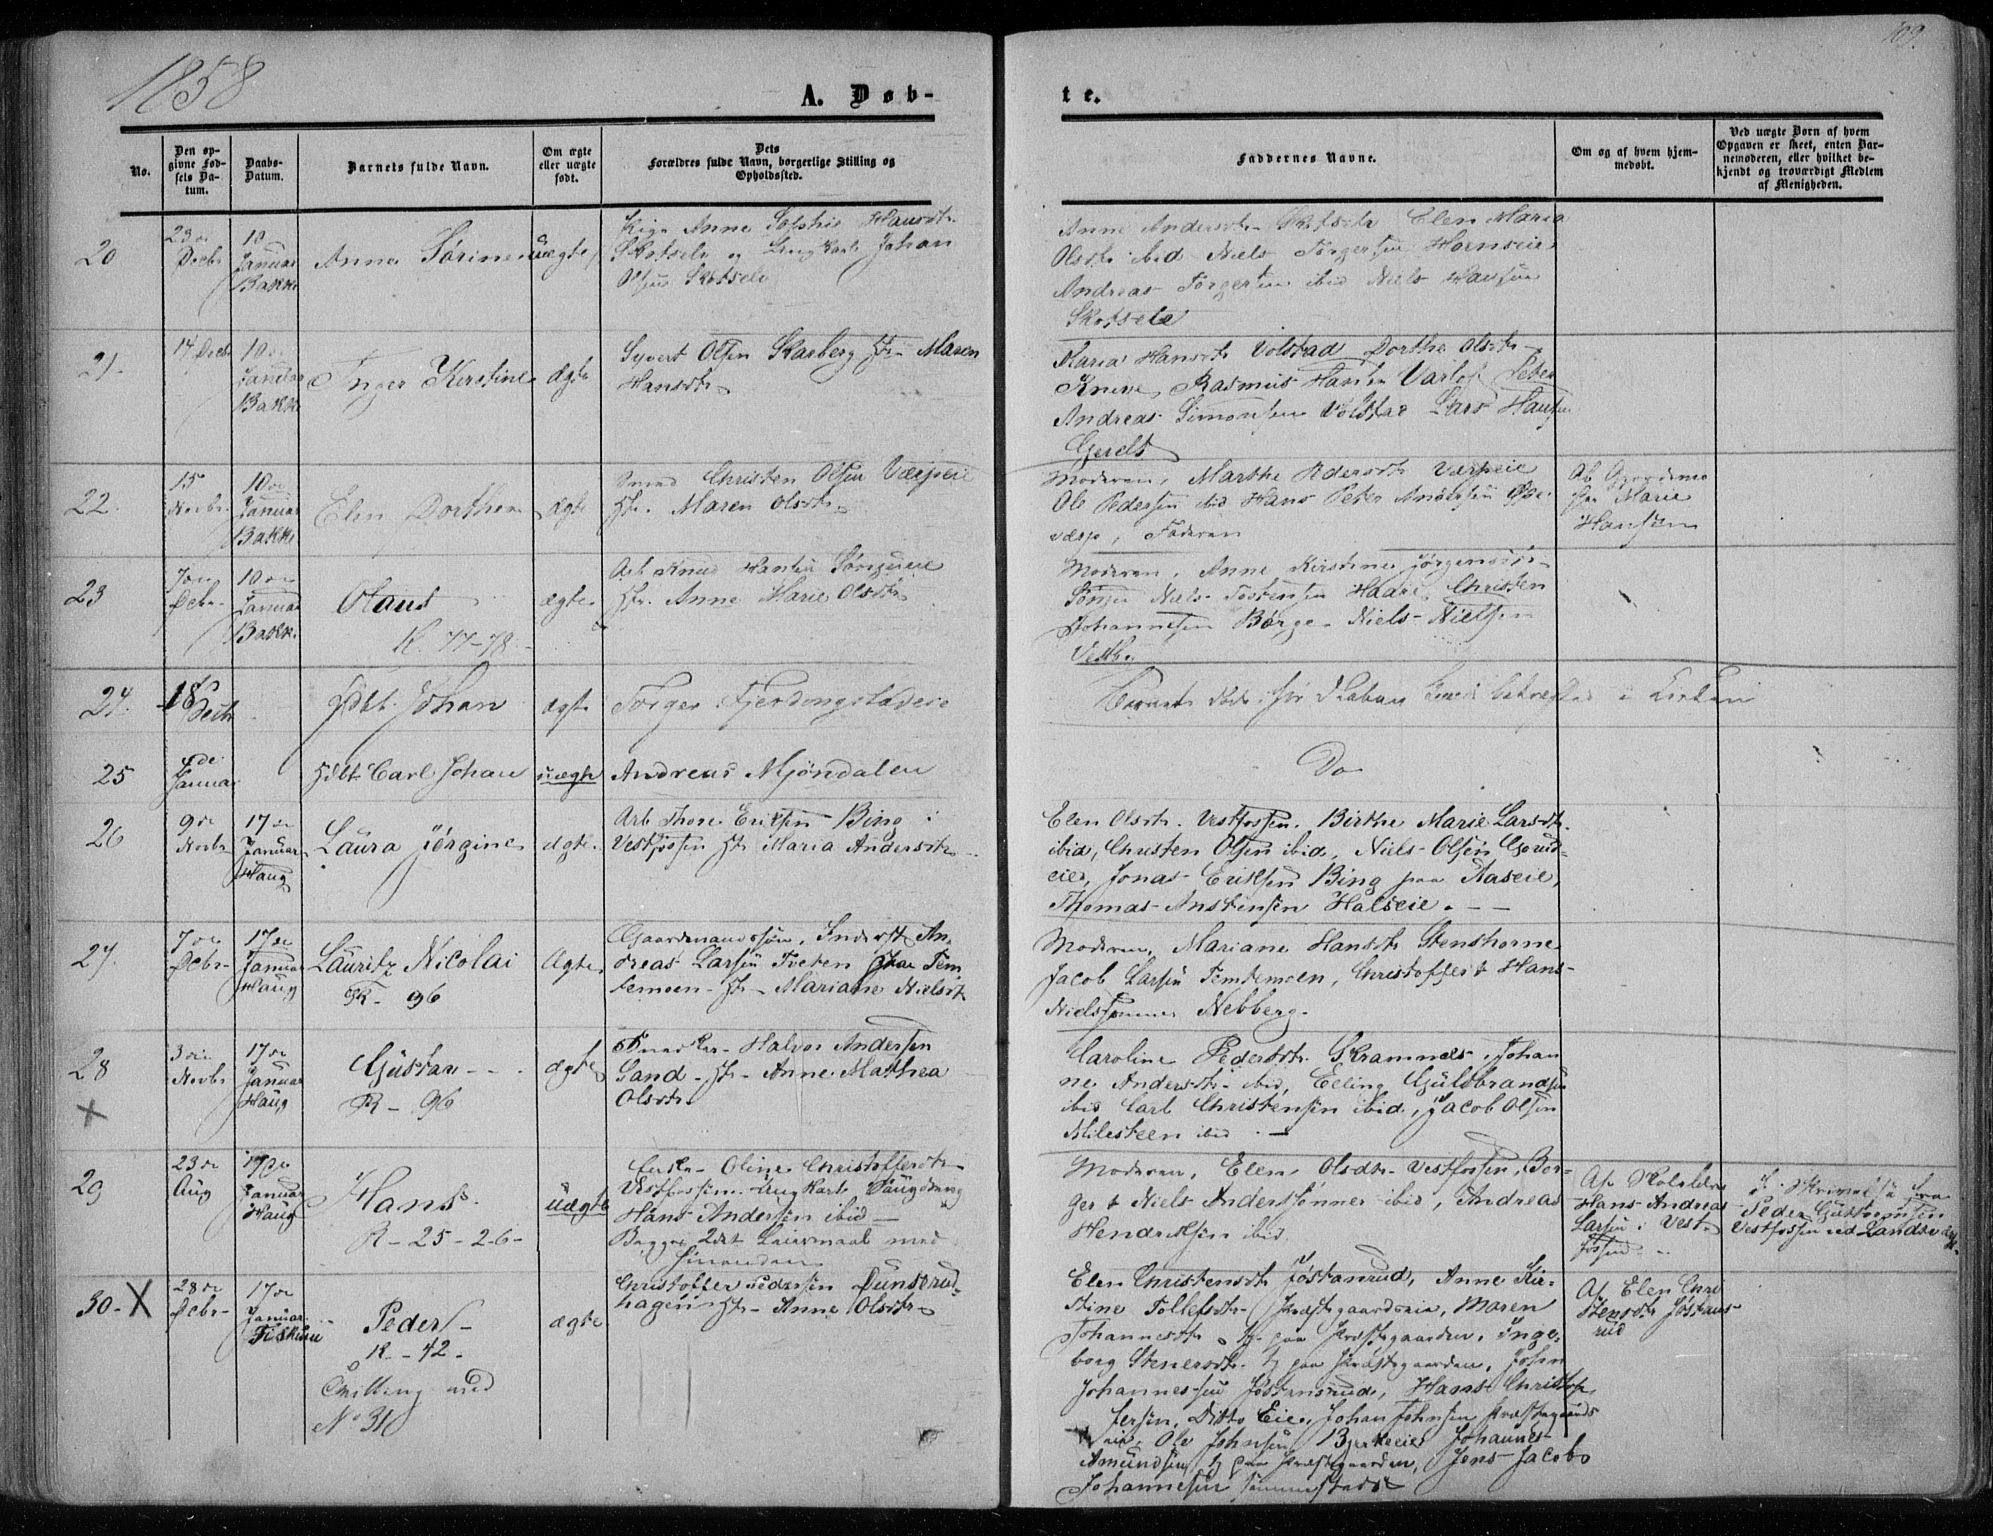 1858
109.
A. Døb-
te.
No.
Den op-
givne Fød-
sels Da-
tum.
Daabs-
Datum.
Barnets fulde Navn.
Om ægte
eller uægte
født.
Dets
Forældres fulde Navn, borgerlige Stilling og
Opholdssted.
Faddernes Navne.
Om og af hvem hjem-
medøbt.
Ved uægte Børn af hvem
Opgaven er skeet, enten Bar-
nemoderen, eller hvilket be-
kjendt og troværdigt Medlem
af Menigheden.
20
23de
Decbr
10
Januar
Bakke
Anne Sørine
uægte
Pige Anne Sophie Hansdtr
Skotselv og Ungkarl Johan
Olsen Skotselv
Anne Andersdtr Skotselv Elen Maria
Olsdtr ibid Niels Torgersen Hornseie
Andreas Torgersen ibid Niels Hansen
Skotselv
21.
14 Decbr
10de
Januar
Bakke
Inger Kirstine
ægte
Syvert Olsen Skarberg Hr Maren
Hansdtr
Maria Hansdtr Volstad Dorthe Olsdtr
Knive Rasmus Hansen Varlo Peter
Andreas Simonsen Volstad Lars Hansen
22.
15
Novbr
10de
Januar
Bakke
Elen Dorthea
ægte
Christen Olsen Væspeie
Hr. Maren Olsdtr
Moderen, Marthe Pedersdtr Væspeie
Ole Pedersen ibid Hans Peter Andersen
væsp, Faderen
Marie
Hansen
23
7de
Decbr
10de
Januar
Bakke
Olaus
K. 77-78.
ægte
Arb Knud Hansen
Hr. Anne Marie Olsdtr
Moderen, Anne Kirstine Jørgensdtr
Niels Tostensen Haare, Christen
Johannesen Berge Niels Nielsen
24.
18
Decbr
Hdbt Johan
ægte
Torger Fjerdingstadeie
Barnet døde før i Kirken
25
4de
Januar
Hdbt Carl Johan
uægte
Andreas Mjøndalen
Do
26
9de
Novbr
17de
Januar
Haug
Laura Jørgine
ægte.
Arb Thore Eriksen Bing i
Vestfossen Hr Maria Andersdtr
Elen Olsdtr. Vestfossen. Birthe Marie Larsdtr.
ibid, Christen Olsen ibid, Niels Olsen Grud-
eie, Jonas Eriksen Bing paa Aaseie,
Thomas Anstensen Halseie.
27.
7de
Decbr
17de
Januar
Haug
Lauritz Nicolai
R - 96
Ægte
Gaardmandssøn, Inderst An-
dreas Larsen Tveten Tem
temoen Hr Mariane Nielsdtr
Moderen, Mariane Hansdtr Stenshorne
Jacob Larsen Temtemoen, Christoffer & Hans
Nielssønner Nebberg.
28
X
3die
Novbr
17de
Januar
Haug
Gustav
R - 96
ægte
Snedker Halvor Andersen
Sand - Hr - Anne Mathea
Olsdtr
Caroline Pedersdtr. Skramnes, Johan
ne Andersdtr ibid, Elling Guldbrandsen
ibid Carl Christensen ibid, Jacob Olsen
Milesteen ibid.
29
23de
Aug
17de
Januar
Haug
Hans
R - 25 - 26 -
uægte
Oline Christoffersdtr
Vestfossen. Ungkarl
Hans Andersen ibid
Begges 2det Leiermaal med
hinanden
Moderen, Elen Olsdtr Vestfossen, Bør-
ger & Niels Anderssønner ibid, Andreas
Hendriksen ibid
Af Skolelærer
Hans Andreas
Larsen i Vest-
fossen
fra
Peder
Vestfossen
30 - X
28de
Decbr
17de
Januar
Fiskum
Peder
R. - 42 -
Tvilling med
No 31
ægte
Christoffer Pedersen Dunserud-
hagen Hr - Anne Olsdtr
Elen Christensdtr Jøstansrud, Anne Kir-
stine Tollefsdtr Præstegaardseie, Maren
Johannesdtr tj. paa Præstegaarden, Inge-
borg Stenersdtr. tj paa Præstegaarden, John
Johannessen Jøstansrud, Hans Christof-
fersen, Ditto Eie, Johan Johnsen Præstegaards
eie, Ole Johnsen Bjerkeeie Johannes
Amundsen tj paa Præstegaarden, Jens Jacob
Johannesen
Af Elen Chri
stensdtr Jøstans-
rud